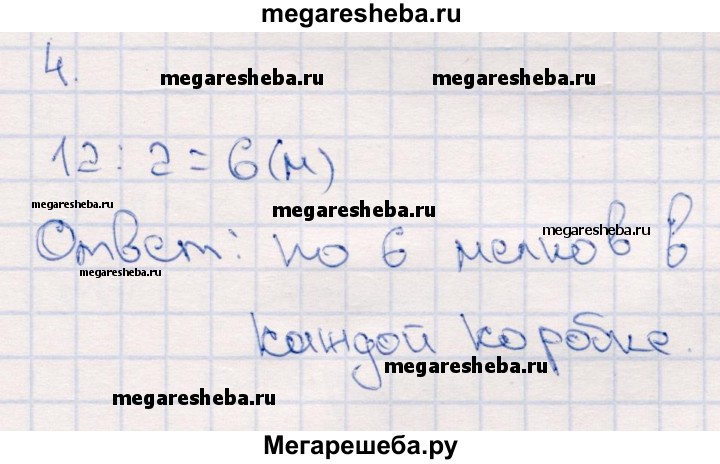 megaresheba.ru
4.
megaresheba.ru
megaresheba.ru
12 : 2 = 6 (м)
megaresheba.ru
megaresheba.ru
Ответ: по 6 мелков в
megaresheba.ru
megaresheba.ru
каждой коробке.
megaresheba.ru
megaresheba.ru
Мегарешеба.ру